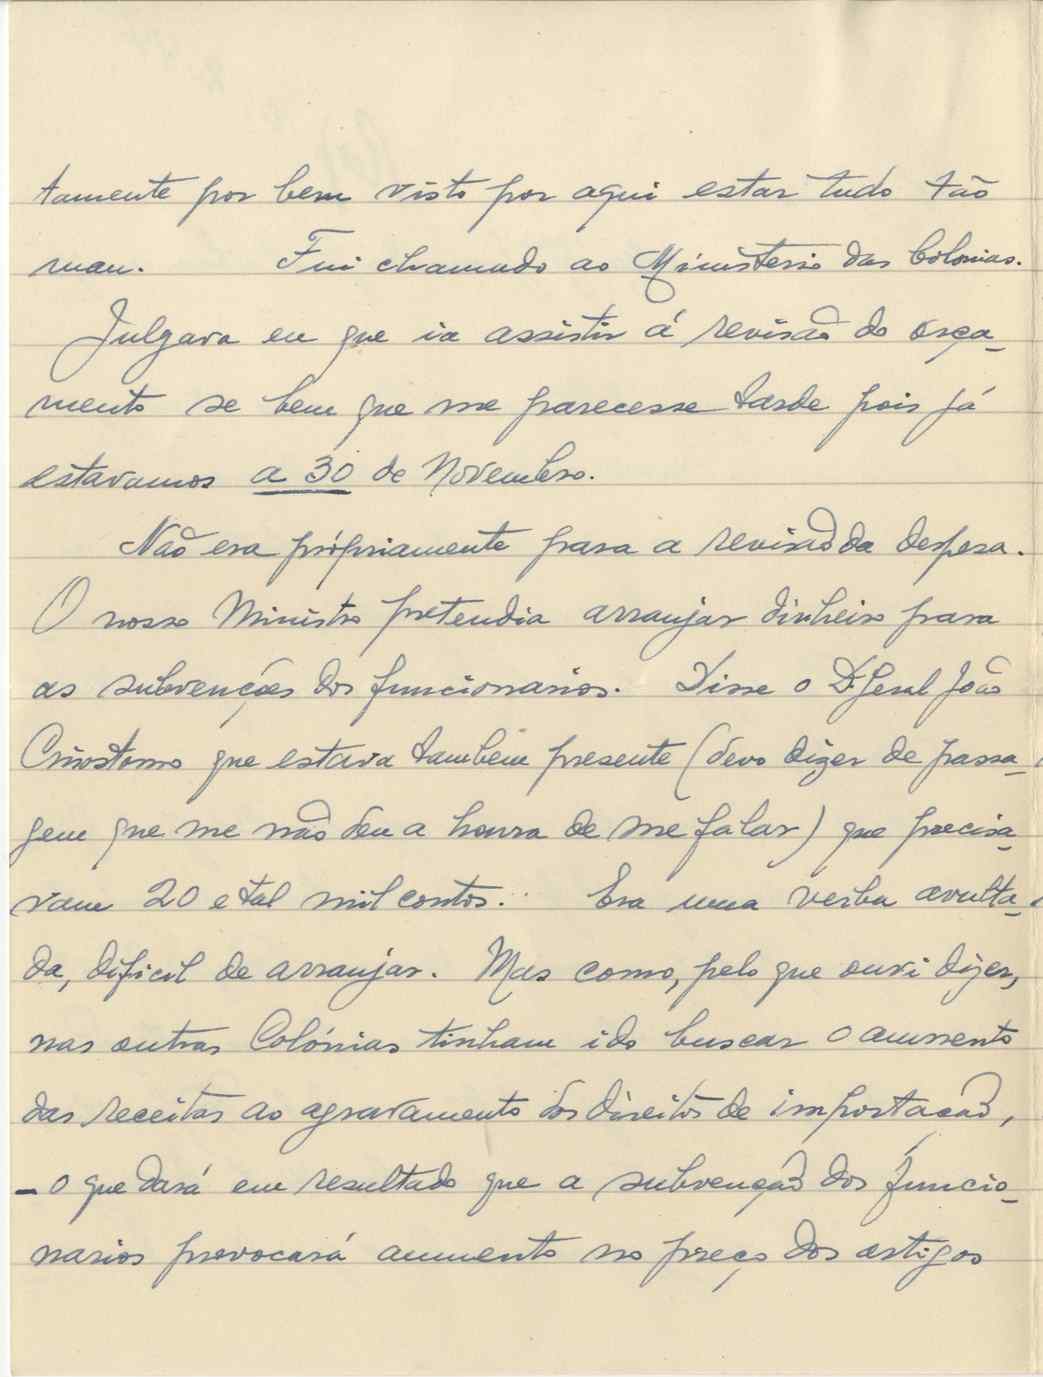 tamente por bem visto por aqui estar tudo tão
mau. Fui chamado ao Ministerio das Colonias.
Julgava eu que ia assistir á revisão do orça-
mento se bem que me parecesse tarde pois já
estavamos a 30 de Novembro.
Não era própriamente para a revisão da despesa.
O nosso Ministro pretendia arranjar dinheiro para
as subvenções dos funcionarios. Disse o D. Geral João
Crisostomo que estava tambem presente (devo dizer de passa-
gem que me não deu a honra de me falar) que precisa-
vam 20 e tal mil contos. Era uma verba avulta-
da, dificil de arranjar. Mas como, pelo que ouvi dizer,
nas outras Colónias tinham ido buscar o aumento
das receitas ao agravamento dos direitos de importação,
- o que dará em resultado que a subvenção dos funcio-
narios provocará aumento no preço dos artigos